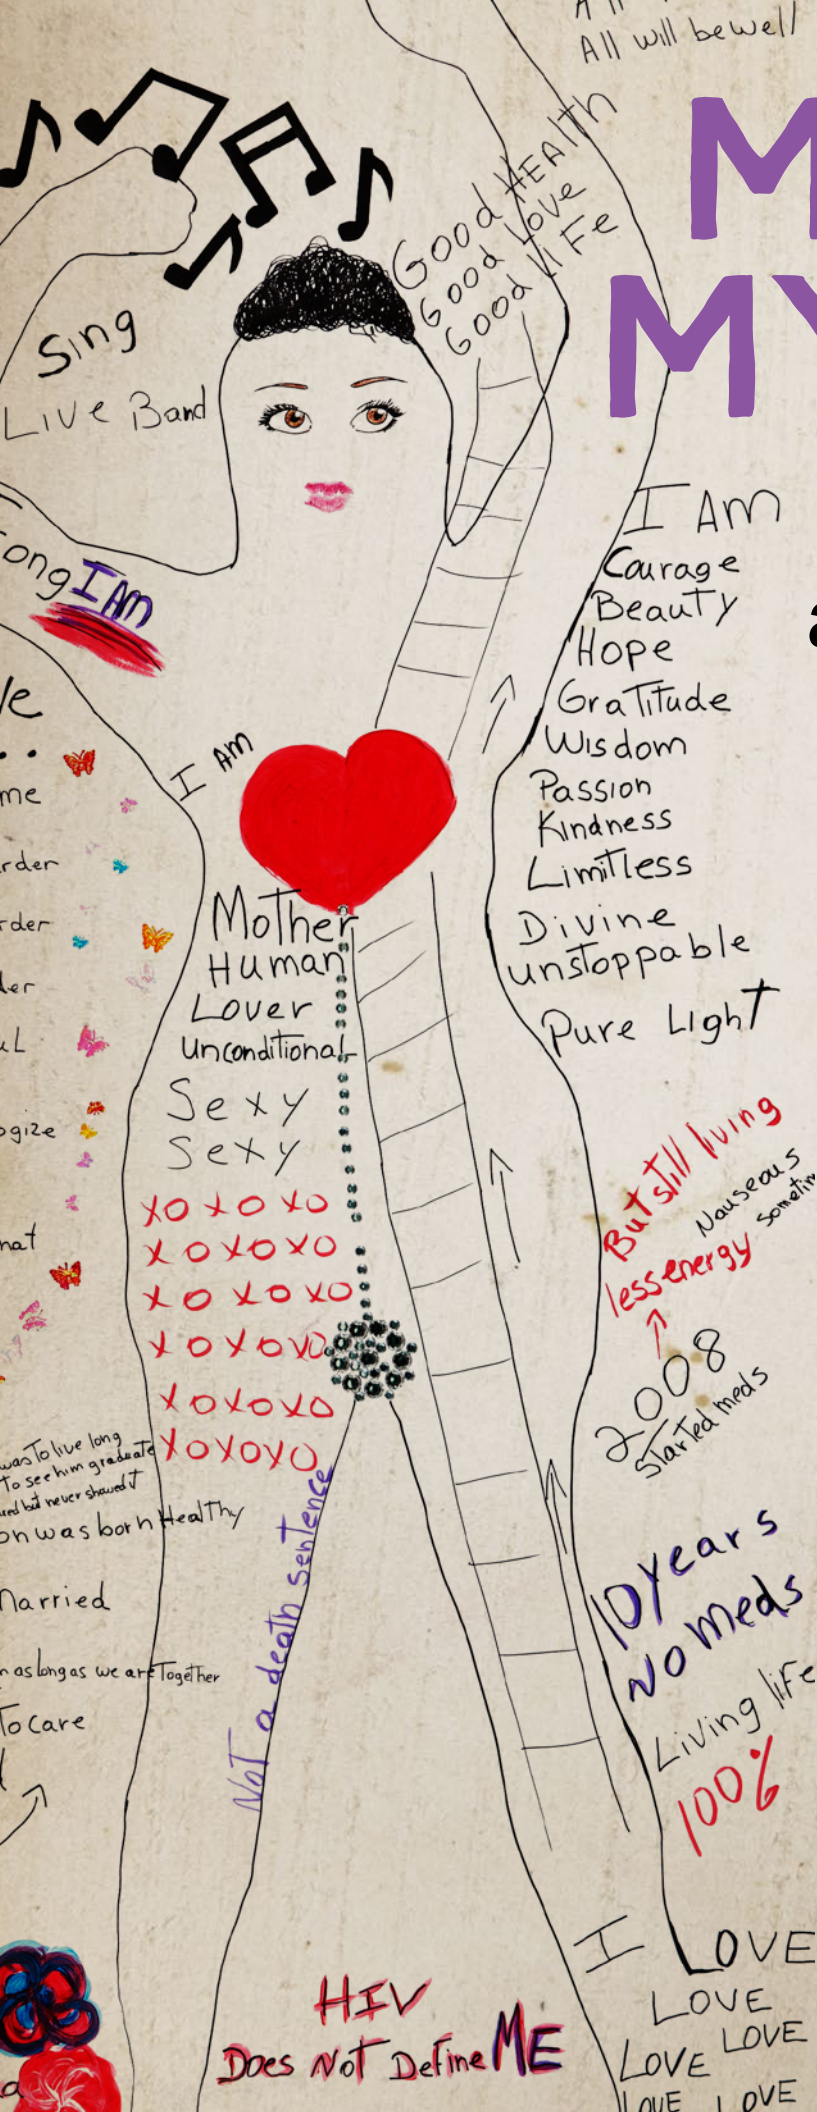 All will be well
M
MY
Good HEAlTh
Good Love
Good LIFe
Sing
Live Band
ong I AM
I AM
Courage
Beauty
Hope
Gratitude
Wisdom
Passion
Kindness
Limitless
Divine
unstoppable
Pure Light
me
rder
rder
der
ogize
I AM
Mother
Human
Lover
Unconditional
Sexy
Sexy
XO XO XO
XO XO XO
XO XO XO
XO XO XO
XO XO XO
XO XO XO
But still living
Nauseous
less energy
2008
Started meds
was To live long
To see him graduate
but never showed it
on was born Healthy
Married
as long as we are Together
To care
Not a death sentence
10 years
No Meds
Living life
100%
HIV
Does Not Define ME
I LOVE
LOVE
LOVE LOVE
LOVE LOVE